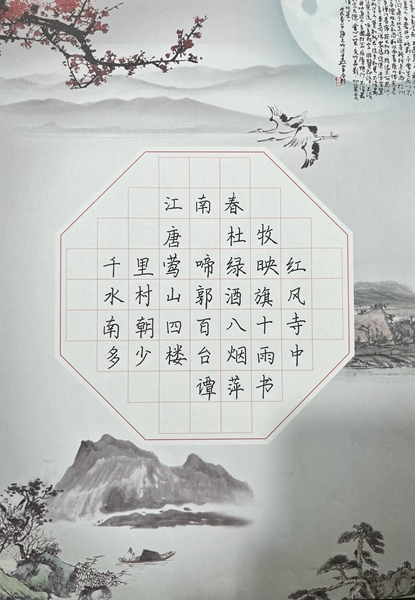 江南春
唐 杜牧
千里莺啼绿映红
水村山郭酒旗风
南朝四百八十寺
多少楼台烟雨中
谭萍书